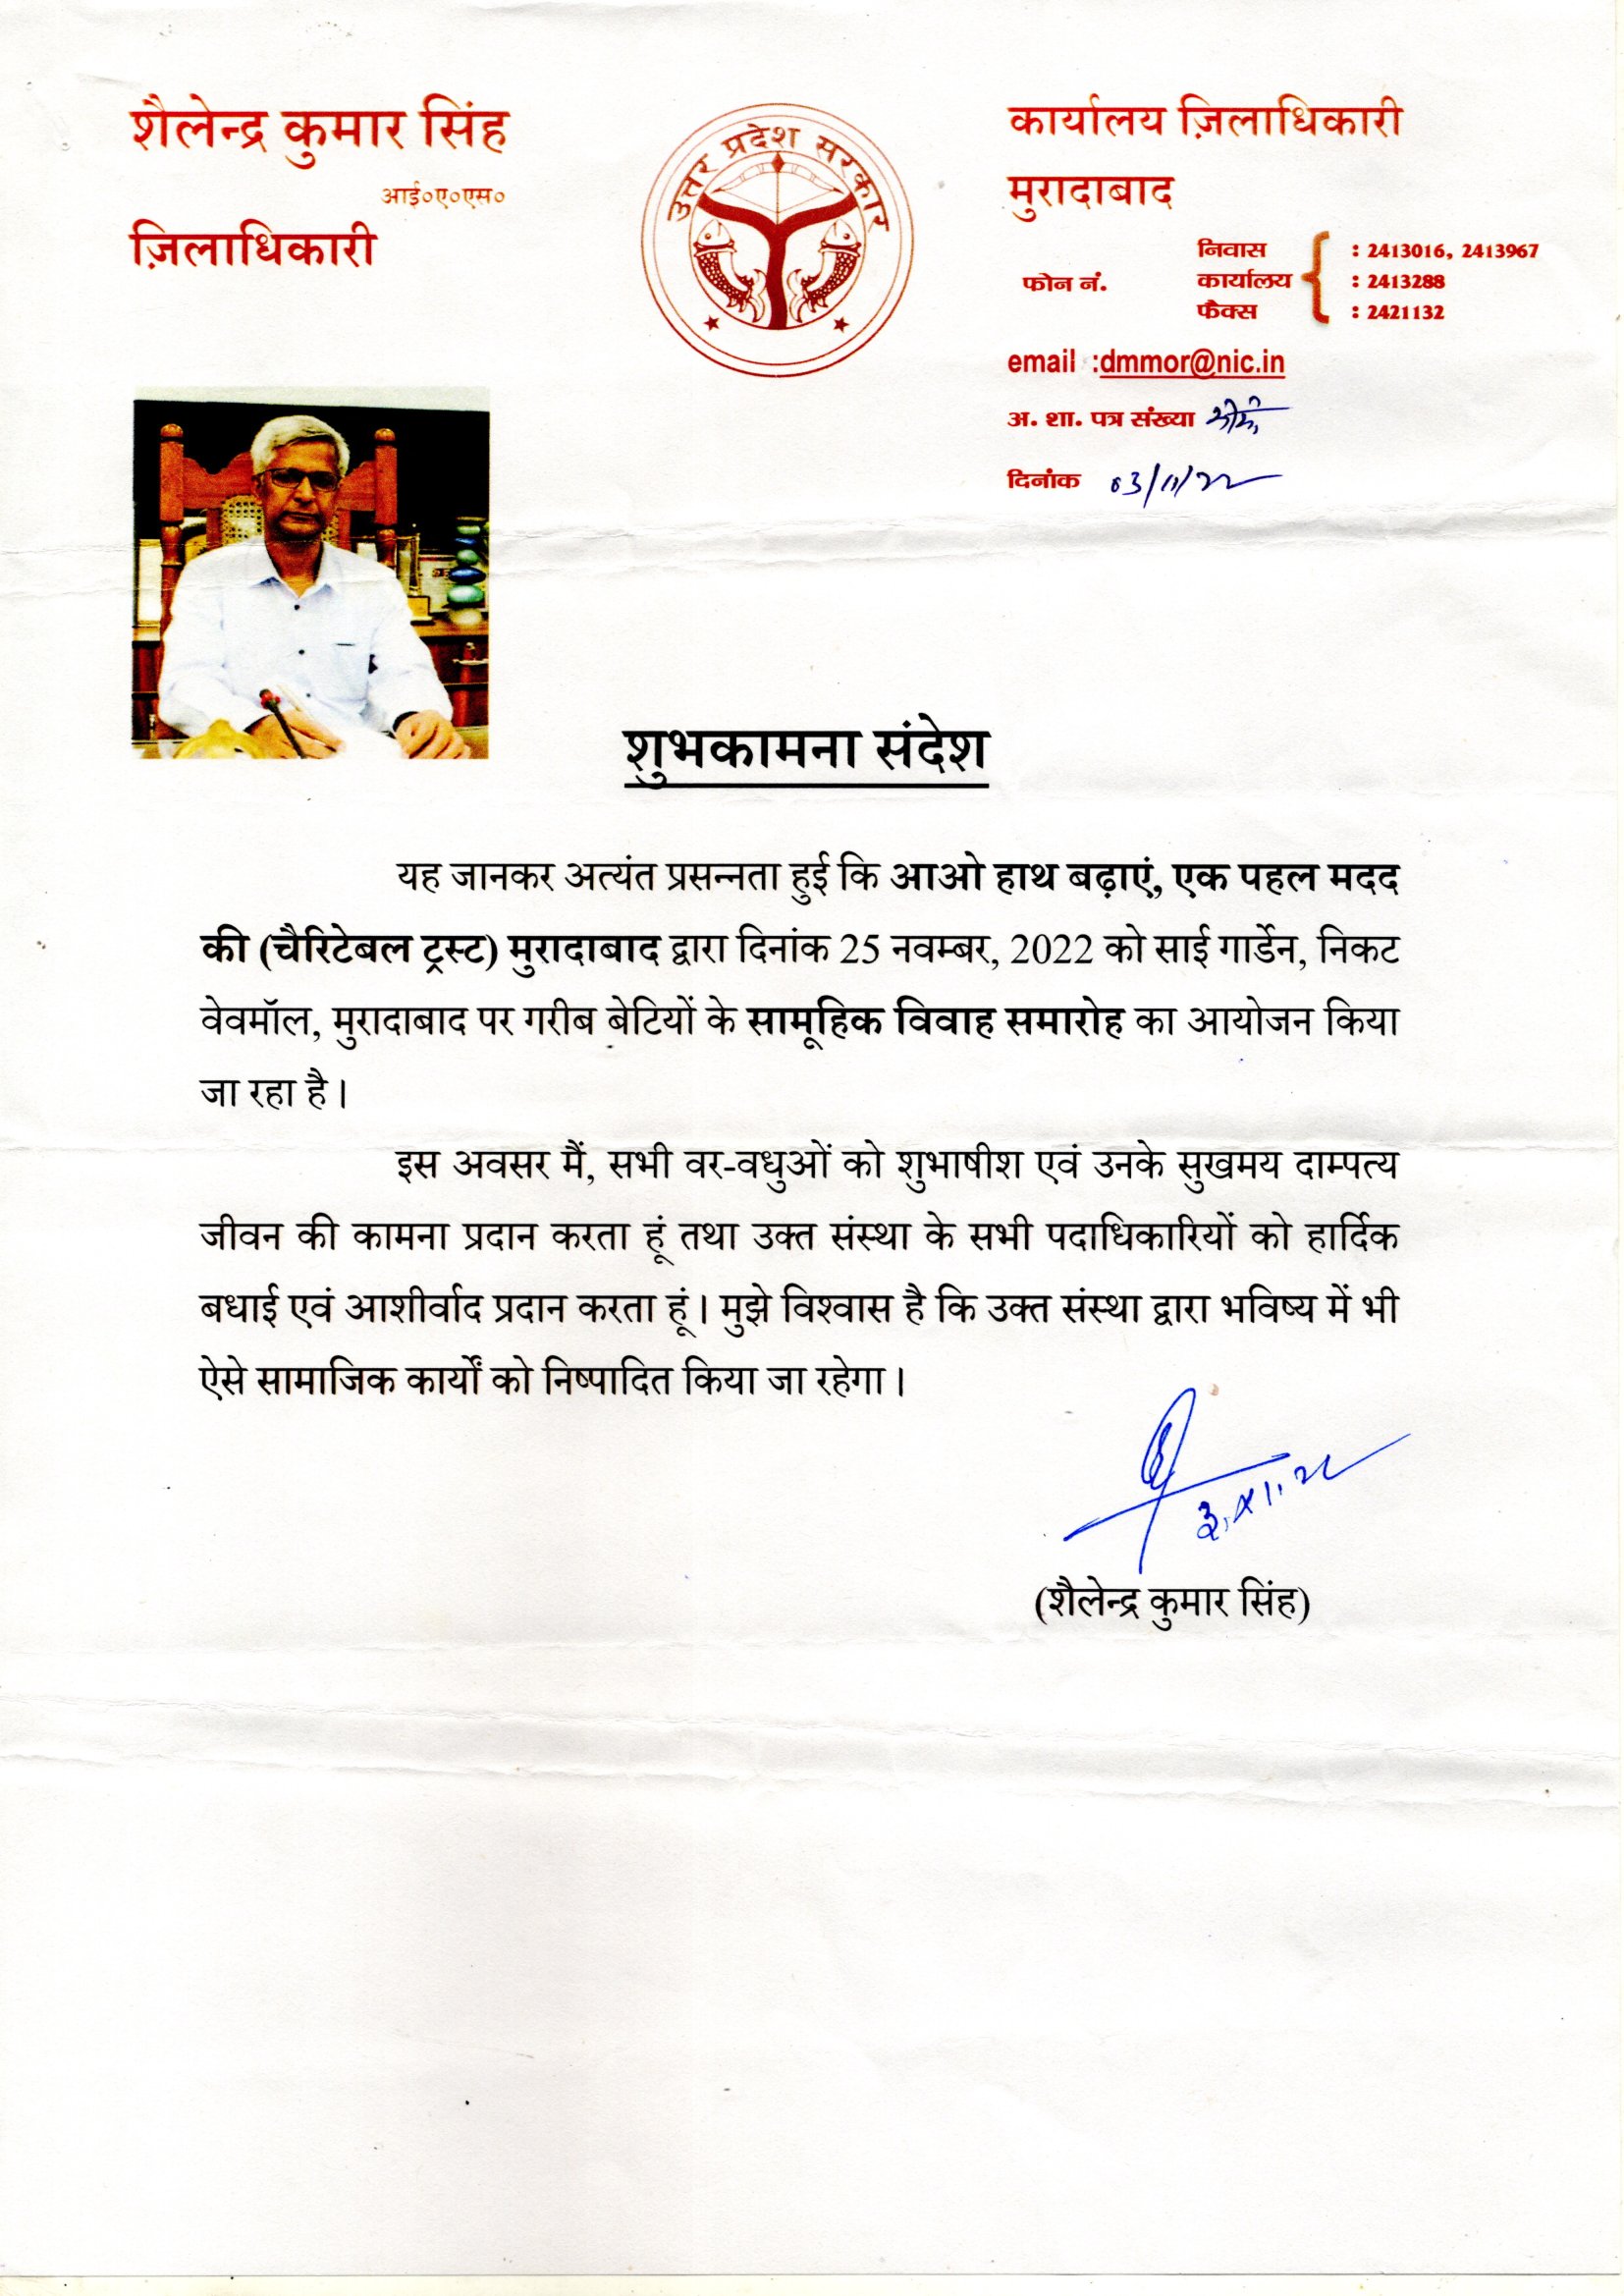 शैलेन्द्र कुमार सिंह
आई०ए०एस०
ज़िलाधिकारी
उत्तर प्रदेश सरकार
कार्यालय ज़िलाधिकारी
मुरादाबाद
फोन नं.
निवास : 2413016, 2413967
कार्यालय : 2413288
फैक्स : 2421132
email :dmmor@nic.in
अ. शा. पत्र संख्या
दिनांक 03/11/22
शुभकामना संदेश
यह जानकर अत्यंत प्रसन्नता हुई कि आओ हाथ बढ़ाएं, एक पहल मदद
की (चैरिटेबल ट्रस्ट) मुरादाबाद द्वारा दिनांक 25 नवम्बर, 2022 को साई गार्डेन, निकट
वेवमॉल, मुरादाबाद पर गरीब बेटियों के सामूहिक विवाह समारोह का आयोजन किया
जा रहा है।
इस अवसर मैं, सभी वर-वधुओं को शुभाषीश एवं उनके सुखमय दाम्पत्य
जीवन की कामना प्रदान करता हूं तथा उक्त संस्था के सभी पदाधिकारियों को हार्दिक
बधाई एवं आशीर्वाद प्रदान करता हूं। मुझे विश्वास है कि उक्त संस्था द्वारा भविष्य में भी
ऐसे सामाजिक कार्यों को निष्पादित किया जा रहेगा।
(शैलेन्द्र कुमार सिंह)